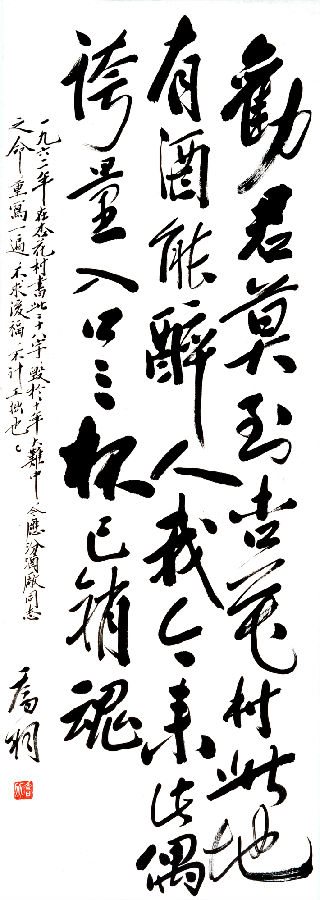 勸君莫到杏花村此地
有酒能醉人我今來此偶
誇量入口三杯已銷魂
一九六二年在杏花村書此二十八字毀於十年大難中今應汾酒廠同志
之命重寫一遍不求 不計工拙也
喬羽